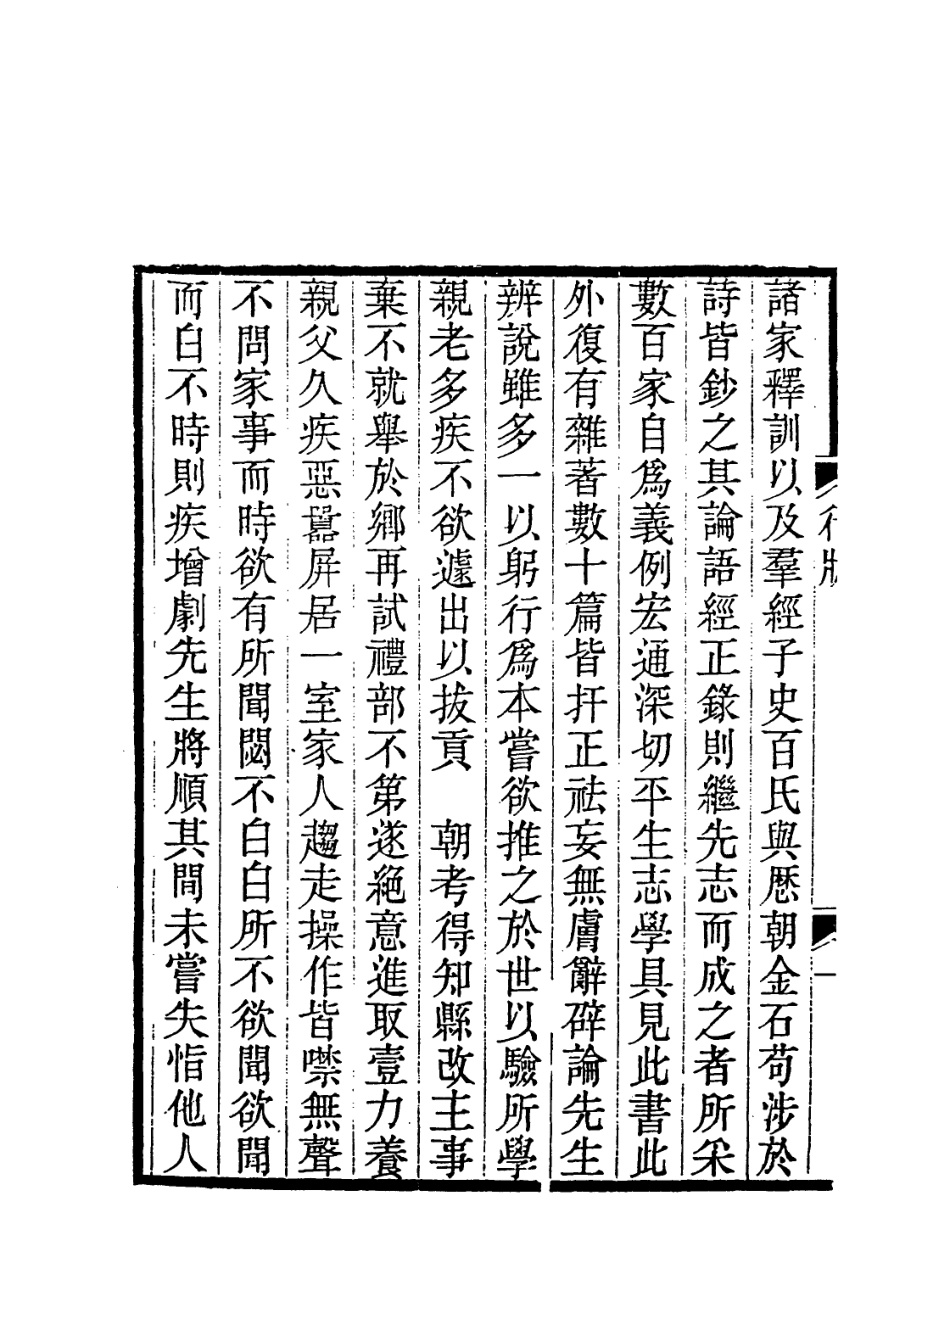 行狀
一
諸家釋訓以及羣經子史百氏與厯朝金石苟涉於
詩皆鈔之其論語經正錄則繼先志而成之者所采
數百家自爲義例宏通深切平生志學具見此書此
外復有雜著數十篇皆扞正祛妄無膚辭碎論先生
辨說雖多一以躬行爲本嘗欲推之於世以驗所學
親老多疾不欲遽出以拔貢　朝考得知縣改主事
棄不就舉於鄉再試禮部不第遂絶意進取壹力養
親父久疾惡囂屏居一室家人趨走操作皆噤無聲
不問家事而時欲有所聞閟不白白所不欲聞欲聞
而白不時則疾增劇先生將順其閒未嘗失恉他人